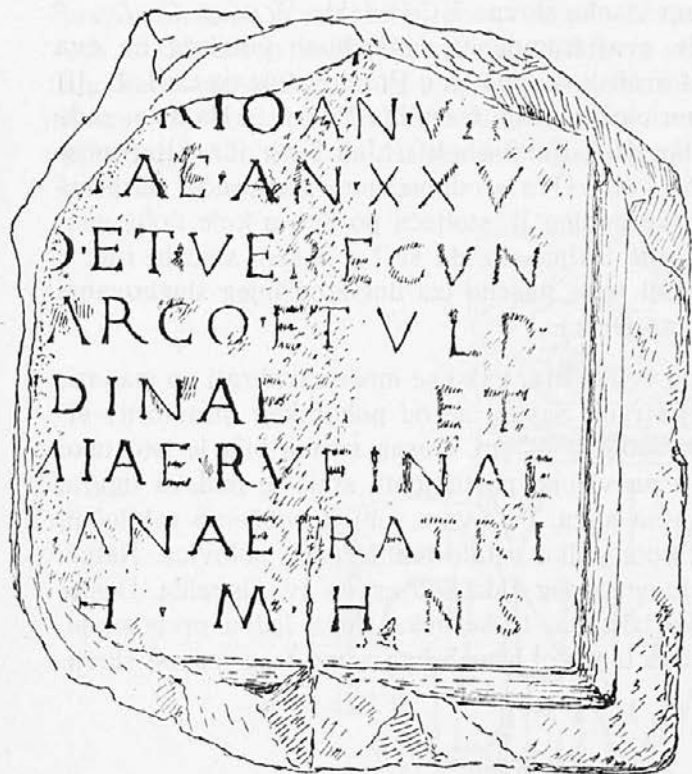 TIO ANV
AE·ANXXV
DETVL TEGVN
ARCO·ET VLP
DINAE ET
MIAERVFINAE
ANAEFRATRI
H·M·H NS